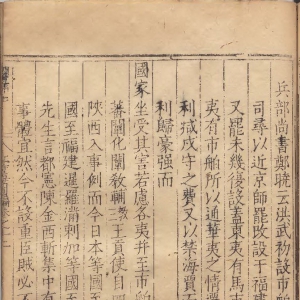 兵部尚書鄭曉云洪武初設市舶
司尋以近京師罷改設于福建
又罷未幾復設蓋東夷有馬
夷有市舶所以通華夷之情遷
利减戍守之費又以禁海賈
利歸豪强而
國家坐受其害若慮各夷并至市
番闡化闡教輔三王貢使
陝西入事例而今日本等國
國至福建暹羅滿剌加等國至
先生言都憲陳金西斬集中有
事體宜然今不設重臣賊必不